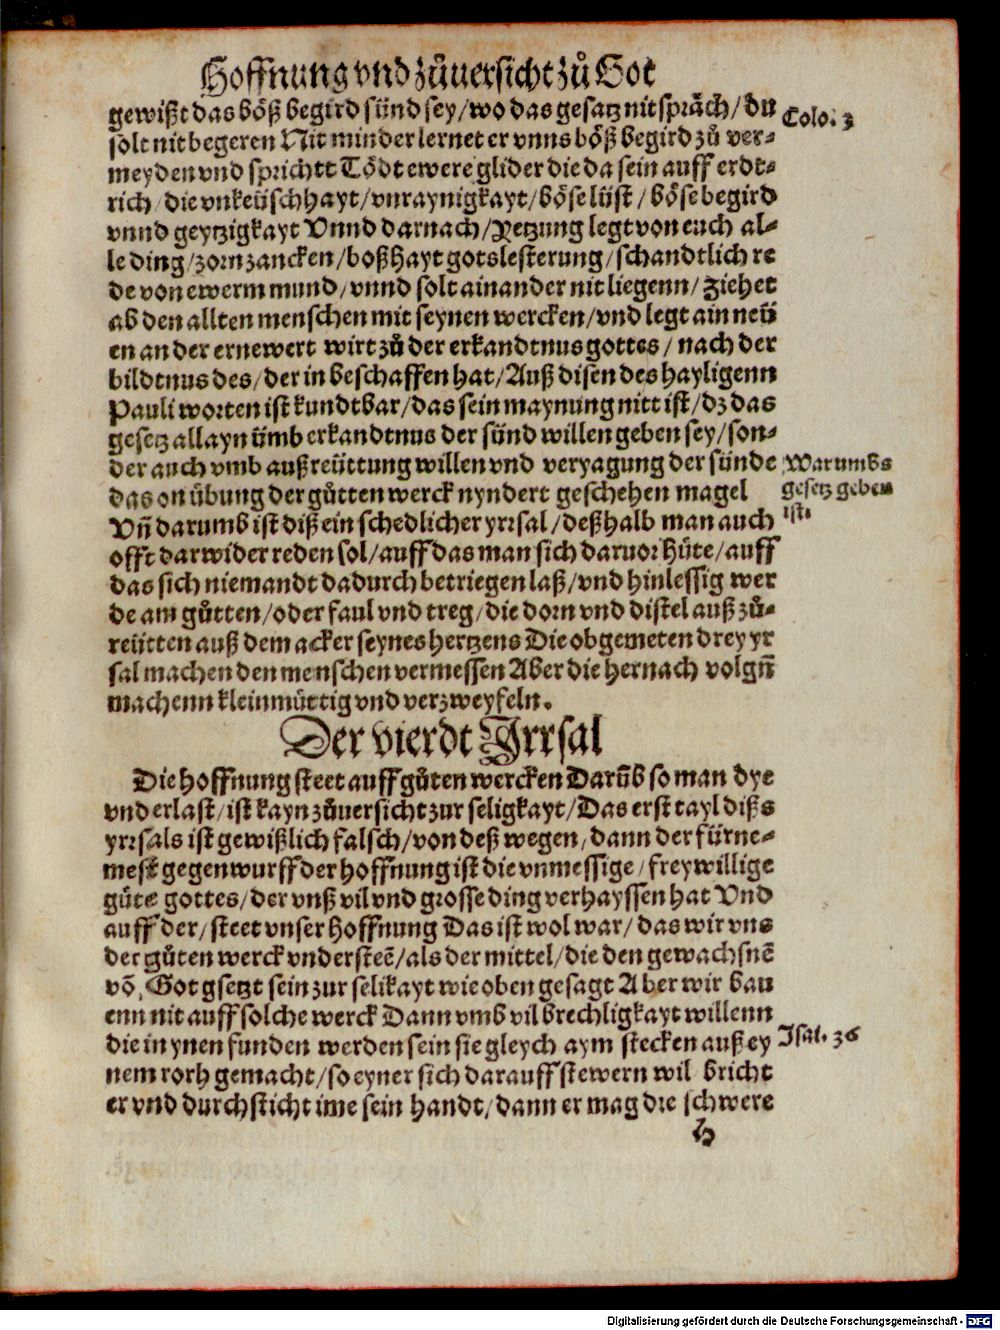 Hoffnung vnd zůuersicht zů Got
gewißt das böß begird sünd sey/wo das gesatz nit spräch/du
solt nit begeren Nit minder lernet er vnns böß begird zů ver-
meyden vnd sprichtt Tödt ewere glider die da sein auff erdt-
rich/die vnkeüschhayt/vnraynigkayt/böse lüst/böse begird
vnnd geytzigkayt Vnnd darnach/Yetzung legt von euch al-
le ding/zorn zancken/boßhayt gotslesterung/schandtlich re
de von ewerm mund/vnnd solt ainander nit liegenn/Ziehet
ab den allten menschen mit seynen wercken/vnd legt ain neü
en an der ernewert wirt zů der erkandtnus gottes/nach der
bildtnus des/der in beschaffen hat/Auß disen des hayligenn
Pauli worten ist kundtbar/das sein maynung nitt ist/dz das
gesetz allayn ümb erkandtnus der sünd willen geben sey/son-
der auch vmb außreüttung willen vnd veryagung der sünde
das on übung der gůtten werck nyndert geschehen magel
Vñ darumb ist diß ein schedlicher yrrsal/deßhalb man auch
offt darwider reden sol/auff das man sich daruor hüte/auff
das sich niemandt dadurch betriegen laß/vnd hinlessig wer
de am gůtten/oder faul vnd treg/die dorn vnd distel auß zů-
reütten auß dem acker seynes hertzens Die obgemeten drey yr
sal machen den menschen vermessen Aber die hernach volgñ
machenn kleinmüttig vnd verzweyfeln.
Colo. 3
Warumbs
gesetz geben
ist
Der vierdt Jrrsal
Die hoffnung steet auff gůten wercken Darũb so man dye
vnderlast/ist kayn zůuersicht zur seligkayt/Das erst tayl diß
yrrsals ist gewißlich falsch/von deß wegen/dann der fürne-
mest gegenwurff der hoffnung ist die vnmessige/freywillige
güte gottes/der vnß vil vnd grosse ding verhayssen hat Vnd
auff der/steet vnser hoffnung Das ist wol war/das wir vns
der gůten werck vndersteẽ/als der mittel/die den gewachsnẽ
võ Got gsetzt sein zur selikayt wie oben gesagt Aber wir bau
enn nit auff solche werck Dann vmb vil brechligkayt willenn
die in ynen funden werden sein sie gleych aym stecken auß ey
nem rorh gemacht/so eyner sich darauff stewern wil bricht
er vnd durchsticht ime sein handt/dann er mag die schwere
Jsai. 36
h
Digitalisierung gefördert durch die Deutsche Forschungsgemeinschaft - DFG